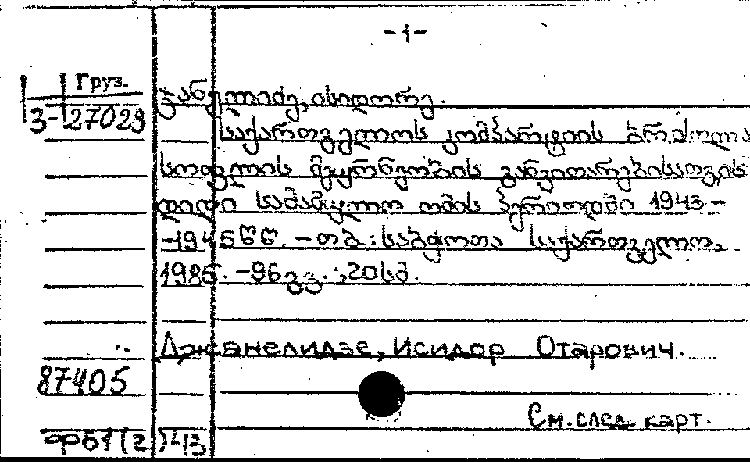 -1-
Груз.
3-27029
ჯანელიძე, ისიდორე.
საქართველოს კომპარტიის ბრძოლა
სოფლის მეურნეობის განვითარებისათვის
დიდი სამამულო ომის პერიოდში 1943-
-1945წწ. - თბ.: საბჭოთა საქართველო,
1985. -96გვ.; 20სმ.
Джанелидзе, Исидор Отарович.
87405
См. след. карт.